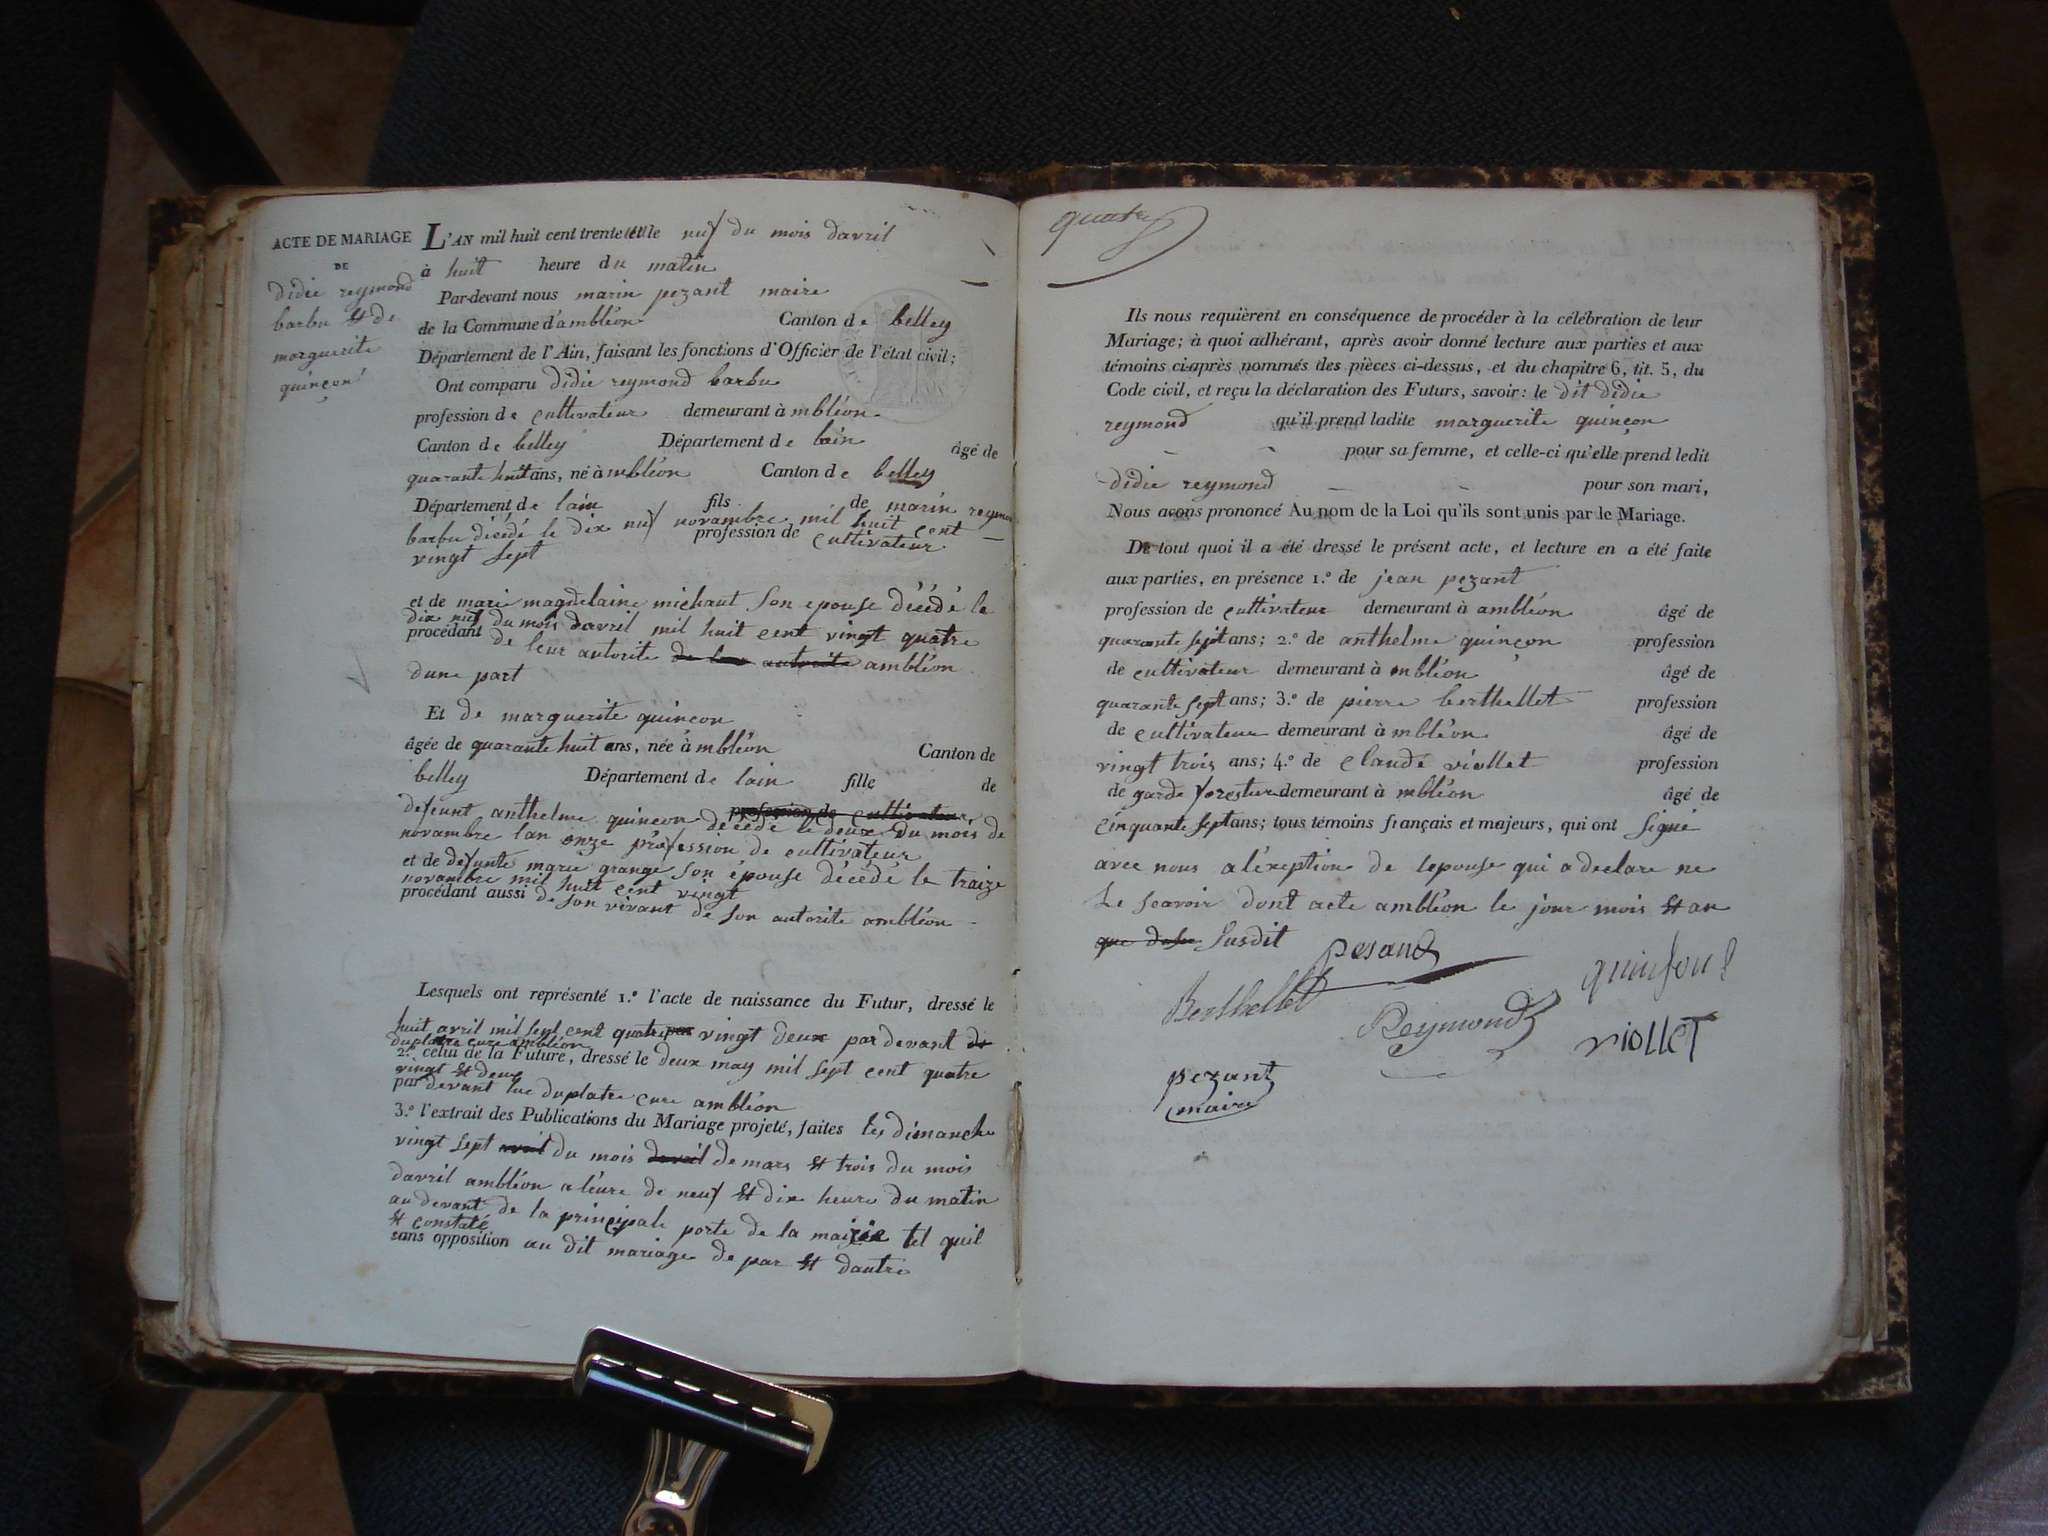 ACTE DE MARIAGE
DE
didie reymond
barbu et de
marguerite
quinçon
L'AN mil huit cent trente et le neuf du mois davril
à huit heure du matin
Par-devant nous marin pezant maire
de la Commune d'ambléon Canton de belley
Département de l'Ain, faisant les fonctions d'Officier de l'état civil;
Ont comparu didie reymond barbu
profession de cultivateur demeurant à mbléon
Canton de belley Département de lain âgé de
quarante huit ans, né à mbléon Canton de belley
Département de lain fils de marin reymond
barbu décédé le dix neuf novembre mil huit cent
vingt sept profession de cultivateur
et de mari magdelaine michaut son epouse décédé le
dix neuf du mois davril mil huit cent vingt quatre
procédant de leur autorite de leur autorite ambléon
dune part
Et de marguerite quinçon
âgée de quarante huit ans, née à mbléon Canton de
belley Département de lain fille de
defeunt anthelme quinçon profession de cultivateur
décédé le deux du mois de
novembre lan onze profession de cultivateur
et de defunte marie grange son épouse décédé le traize
novembre mil huit cent vingt
procédant aussi de son vivant de son autorite ambléon
Lesquels ont représenté 1.º l'acte de naissance du Futur, dressé le
huit avril mil sept cent quatre par vingt deux par devant
duplatre cure ambléon
2.º celui de la Future, dressé le deux may mil sept cent quatre
vingt et deux
par devant luc duplatre cure ambléon
3.º l'extrait des Publications du Mariage projeté, faites les dimanche
vingt sept avril du mois davril de mars et trois du mois
davril ambléon a léure de neuf et dix heure du matin
au devant de la principale porte de la mairie tel quil
et constaté
sans opposition au dit mariage de par et dautre
quatre
Ils nous requièrent en conséquence de procéder à la célébration de leur
Mariage; à quoi adhérant, après avoir donné lecture aux parties et aux
témoins ci-après nommés des pièces ci-dessus, et du chapitre 6, tit. 5, du
Code civil, et reçu la déclaration des Futurs, savoir: le dit didie
reymond qu'il prend ladite marguerite quinçon
pour sa femme, et celle-ci qu'elle prend ledit
didie reymond pour son mari,
Nous avons prononcé Au nom de la Loi qu'ils sont unis par le Mariage.
De tout quoi il a été dressé le présent acte, et lecture en a été faite
aux parties, en présence 1.º de jean pezant
profession de cultivateur demeurant à ambléon âgé de
quarante sept ans; 2.º de anthelme quinçon profession
de cultivateur demeurant à mbléon âgé de
quarante sept ans; 3.º de pierre berthellet profession
de cultivateur demeurant à mbléon âgé de
vingt trois ans; 4.º de claude viollet profession
de garde forestier demeurant à mbléon âgé de
cinquante sept ans; tous témoins français et majeurs, qui ont signé
avec nous a léxeption de lepouse qui a declare ne
le scavoir dont acte ambléon le jour mois et an
susdit
pesand
quinson
Berthellet
Reymond
viollet
pezant
maire